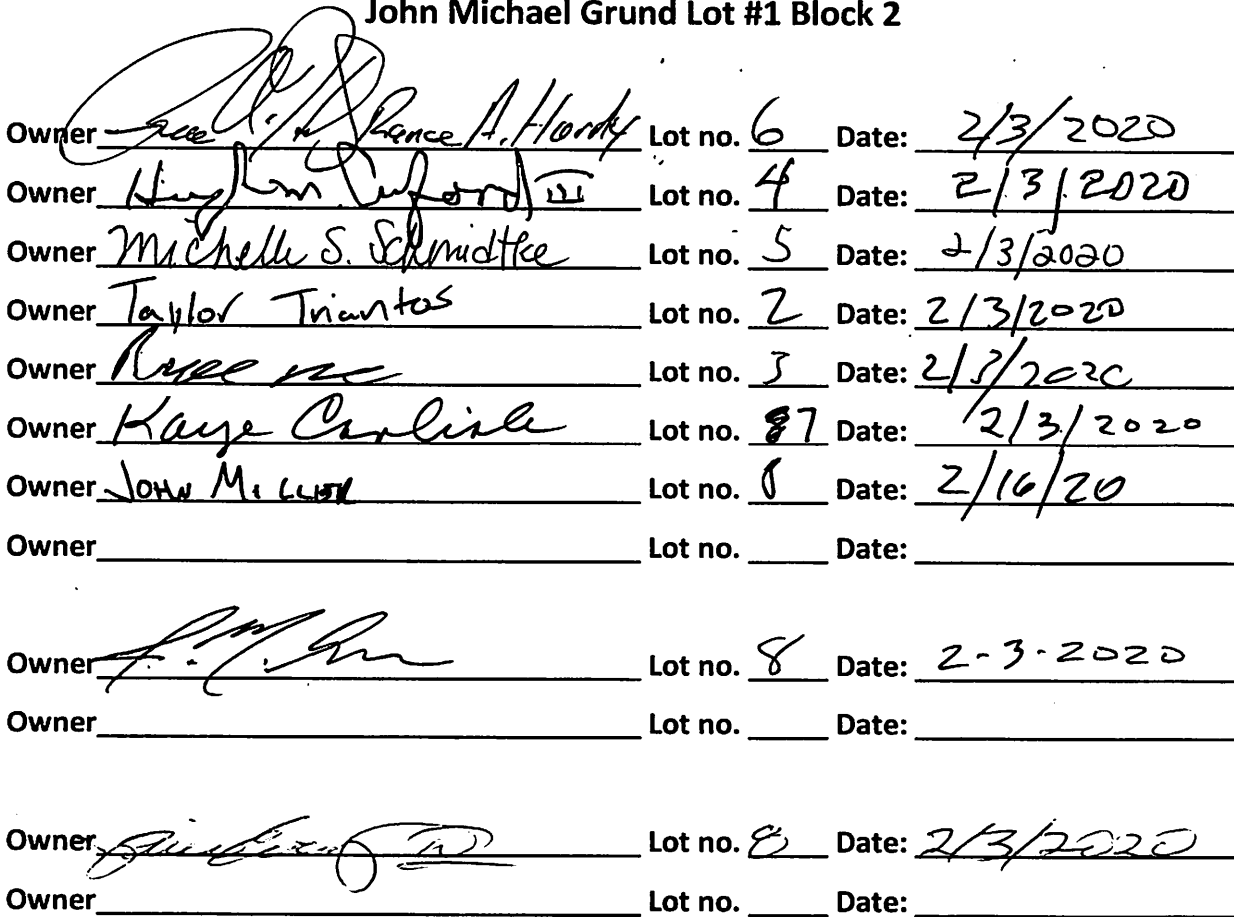 John Michael Grund Lot #1 Block 2
Owner Rance A. Hardy Lot no. 6 Date: 2/3/2020
Owner Hugh m. III Lot no. 4 Date: 2/3/2020
Owner Michelle S. Schmidtke Lot no. 5 Date: 2/3/2020
Owner Taylor Triantos Lot no. 2 Date: 2/3/2020
Owner Lot no. 3 Date: 2/3/2020
Owner Kaye Carlisle Lot no. 7 Date: 2/3/2020
Owner John Miller Lot no. 8 Date: 2/16/20
Owner Lot no. Date:
Owner Lot no. 8 Date: 2-3-2020
Owner Lot no. Date:
Owner Lot no. 8 Date: 2/3/2020
Owner Lot no. Date: